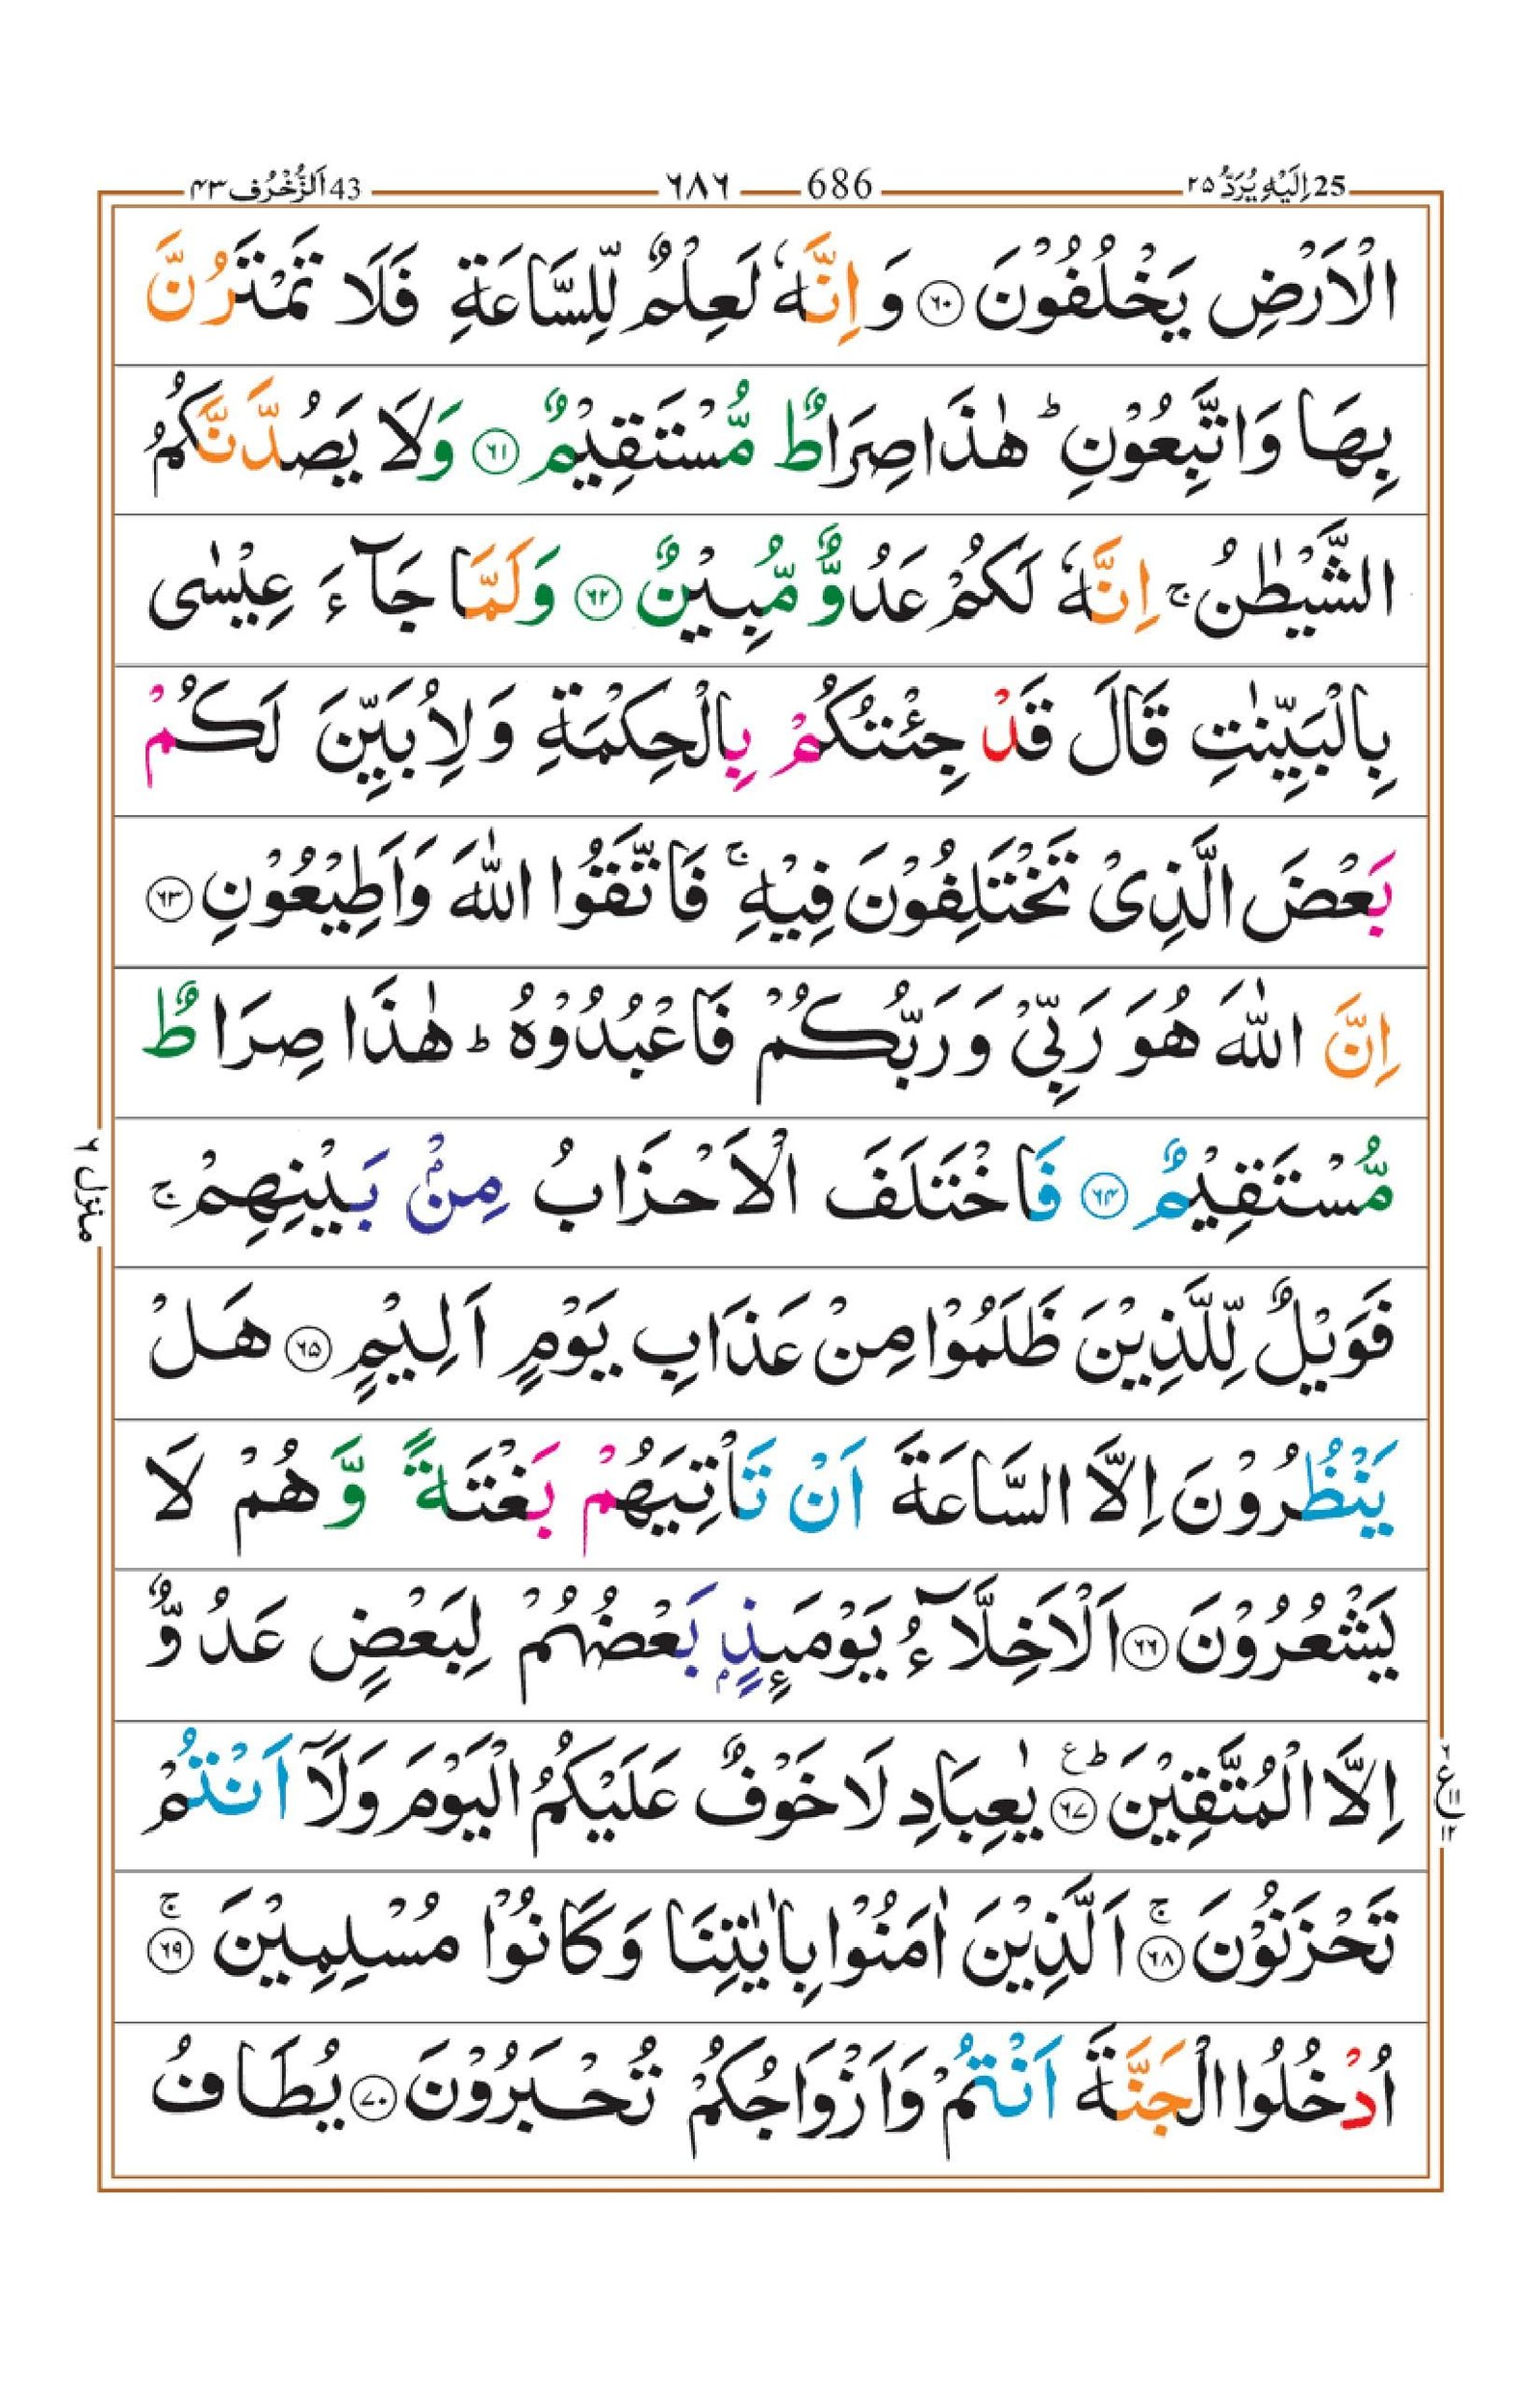 25 اِلَيْهِ يُرَدُّ ٢٥
686 ٦٨٦
43 اَلزُّخْرُف ٤٣
الْاَرْضِ يَخْلُفُوْنَ ۝٦٠ وَ اِنَّهٗ لَعِلْمٌ لِّلسَّاعَةِ فَلَا تَمْتَرُنَّ
بِهَا وَاتَّبِعُوْنِ ؕ هٰذَا صِرَاطٌ مُّسْتَقِيْمٌ ۝٦١ وَلَا يَصُدَّنَّكُمُ
الشَّيْطٰنُ ۚ اِنَّهٗ لَكُمْ عَدُوٌّ مُّبِيْنٌ ۝٦٢ وَلَمَّا جَآءَ عِيْسٰى
بِالْبَيِّنٰتِ قَالَ قَدْ جِئْتُكُمْ بِالْحِكْمَةِ وَلِاُبَيِّنَ لَكُمْ
بَعْضَ الَّذِىْ تَخْتَلِفُوْنَ فِيْهِ ۚ فَاتَّقُوا اللّٰهَ وَاَطِيْعُوْنِ ۝٦٣
اِنَّ اللّٰهَ هُوَ رَبِّىْ وَرَبُّكُمْ فَاعْبُدُوْهُ ؕ هٰذَا صِرَاطٌ
مُّسْتَقِيْمٌ ۝٦٤ فَاخْتَلَفَ الْاَحْزَابُ مِنْۢ بَيْنِهِمْ ۚ
منزل ٦
فَوَيْلٌ لِّلَّذِيْنَ ظَلَمُوْا مِنْ عَذَابِ يَوْمٍ اَلِيْمٍ ۝٦٥ هَلْ
يَنْظُرُوْنَ اِلَّا السَّاعَةَ اَنْ تَاْتِيَهُمْ بَغْتَةً وَّهُمْ لَا
يَشْعُرُوْنَ ۝٦٦ اَلْاَخِلَّآءُ يَوْمَئِذٍۭ بَعْضُهُمْ لِبَعْضٍ عَدُوٌّ
اِلَّا الْمُتَّقِيْنَ ؕ ع ۝٦٧ يٰعِبَادِ لَا خَوْفٌ عَلَيْكُمُ الْيَوْمَ وَلَاۤ اَنْتُمْ
ع ١١ ١٢
تَحْزَنُوْنَ ۚ ۝٦٨ اَلَّذِيْنَ اٰمَنُوْا بِاٰيٰتِنَا وَكَانُوْا مُسْلِمِيْنَ ۚ ۝٦٩
اُدْخُلُوا الْجَنَّةَ اَنْتُمْ وَاَزْوَاجُكُمْ تُحْبَرُوْنَ ۝٧٠ يُطَافُ